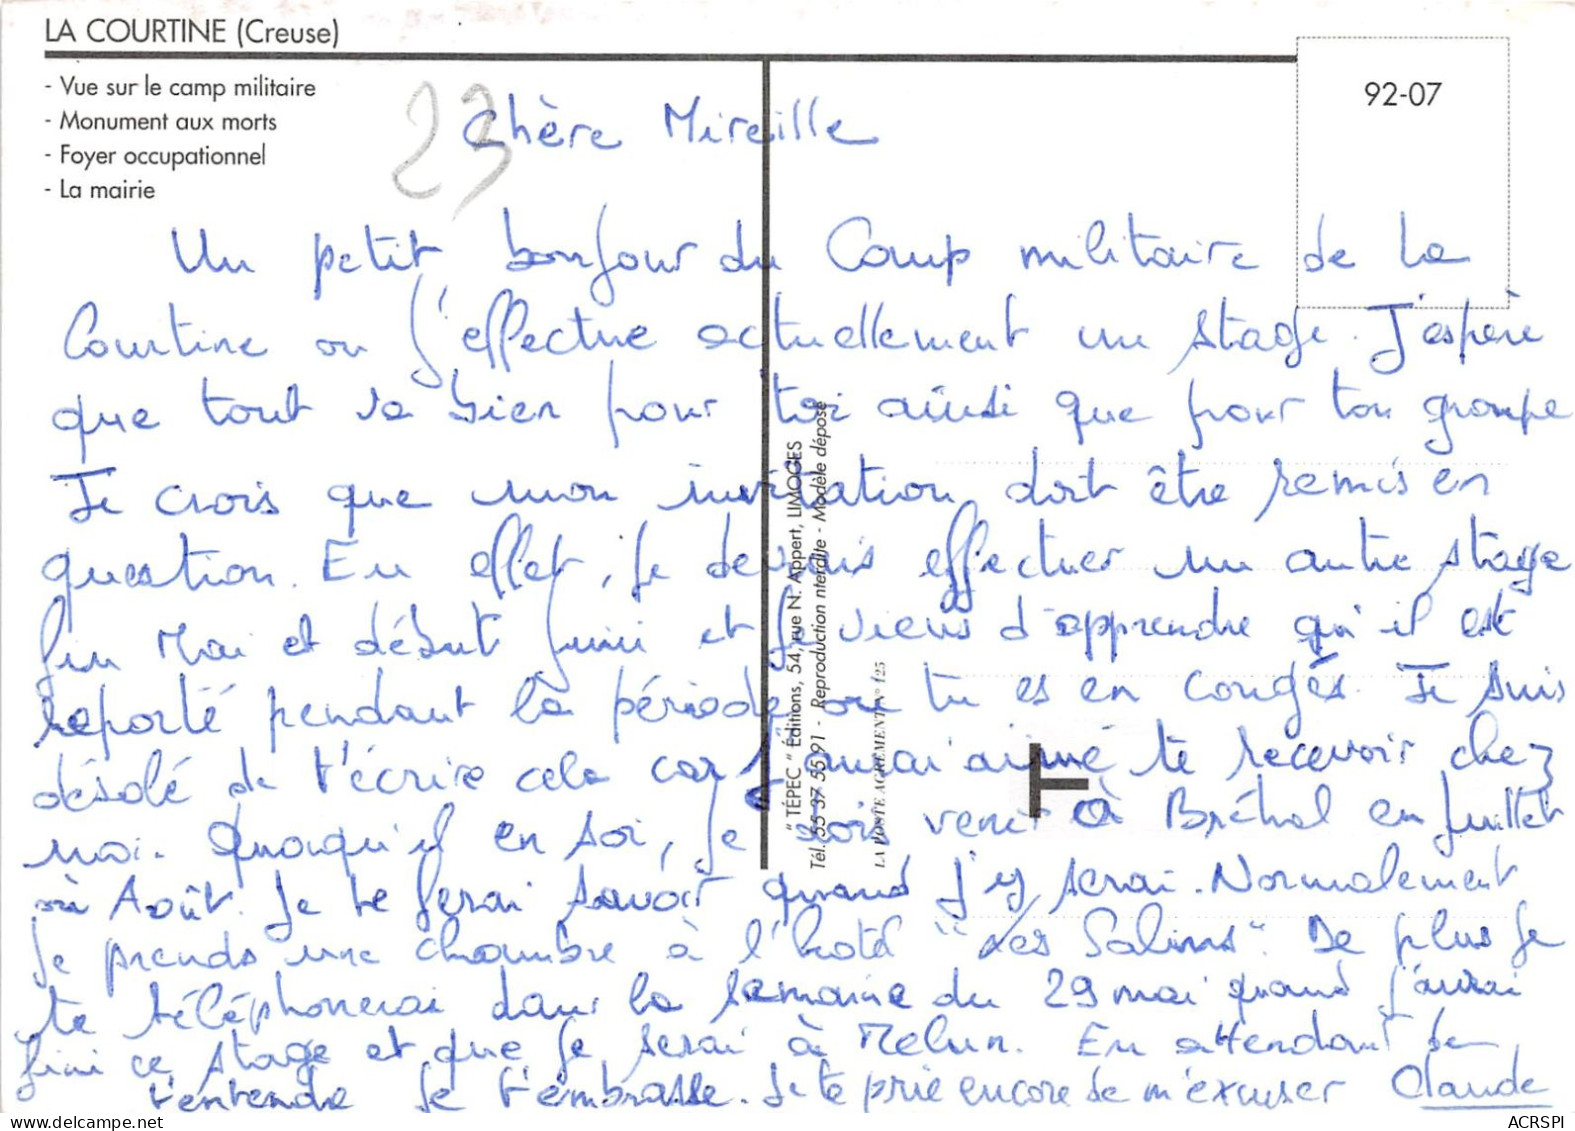 LA COURTINE (Creuse)
- Vue sur le camp militaire
- Monument aux morts
- Foyer occupationnel
- La mairie
92-07
23
Chère Mireille
Un petit bonjour du Camp militaire de La
Courtine ou j'effectue actuellement un stage. J'espère
que tout va bien pour toi ainsi que pour ton groupe
Je crois que mon invitation doit être remis en
question. En effet, je devais effectuer un autre stage
fin Mai et début juin et je viens d'apprendre qu'il est
reporté pendant la période ou tu es en congés. Je suis
désolé de t'écrire cela car j'aurai aimé te recevoir chez
moi. Quoiqu'il en soi, je dois venir à Bréhal en juillet
ou Août. Je te ferai savoir quand j'y serai. Normalement
je prends une chambre à l'hotel "Les Salines". De plus je
te téléphonerai dans la semaine du 29 mai quand j'aurai
fini ce stage et que je serai à Melun. En attendant de
t'entendre je t'embrasse. Je te prie encore de m'excuser Claude
" TÉPEC " Éditions, 54, rue N. Appert, LIMOGES
Tél. 55 37 55 91 - Reproduction interdite - Modèle déposé
LA POSTE AGRÉMENT N° 125
T
ACRSPI